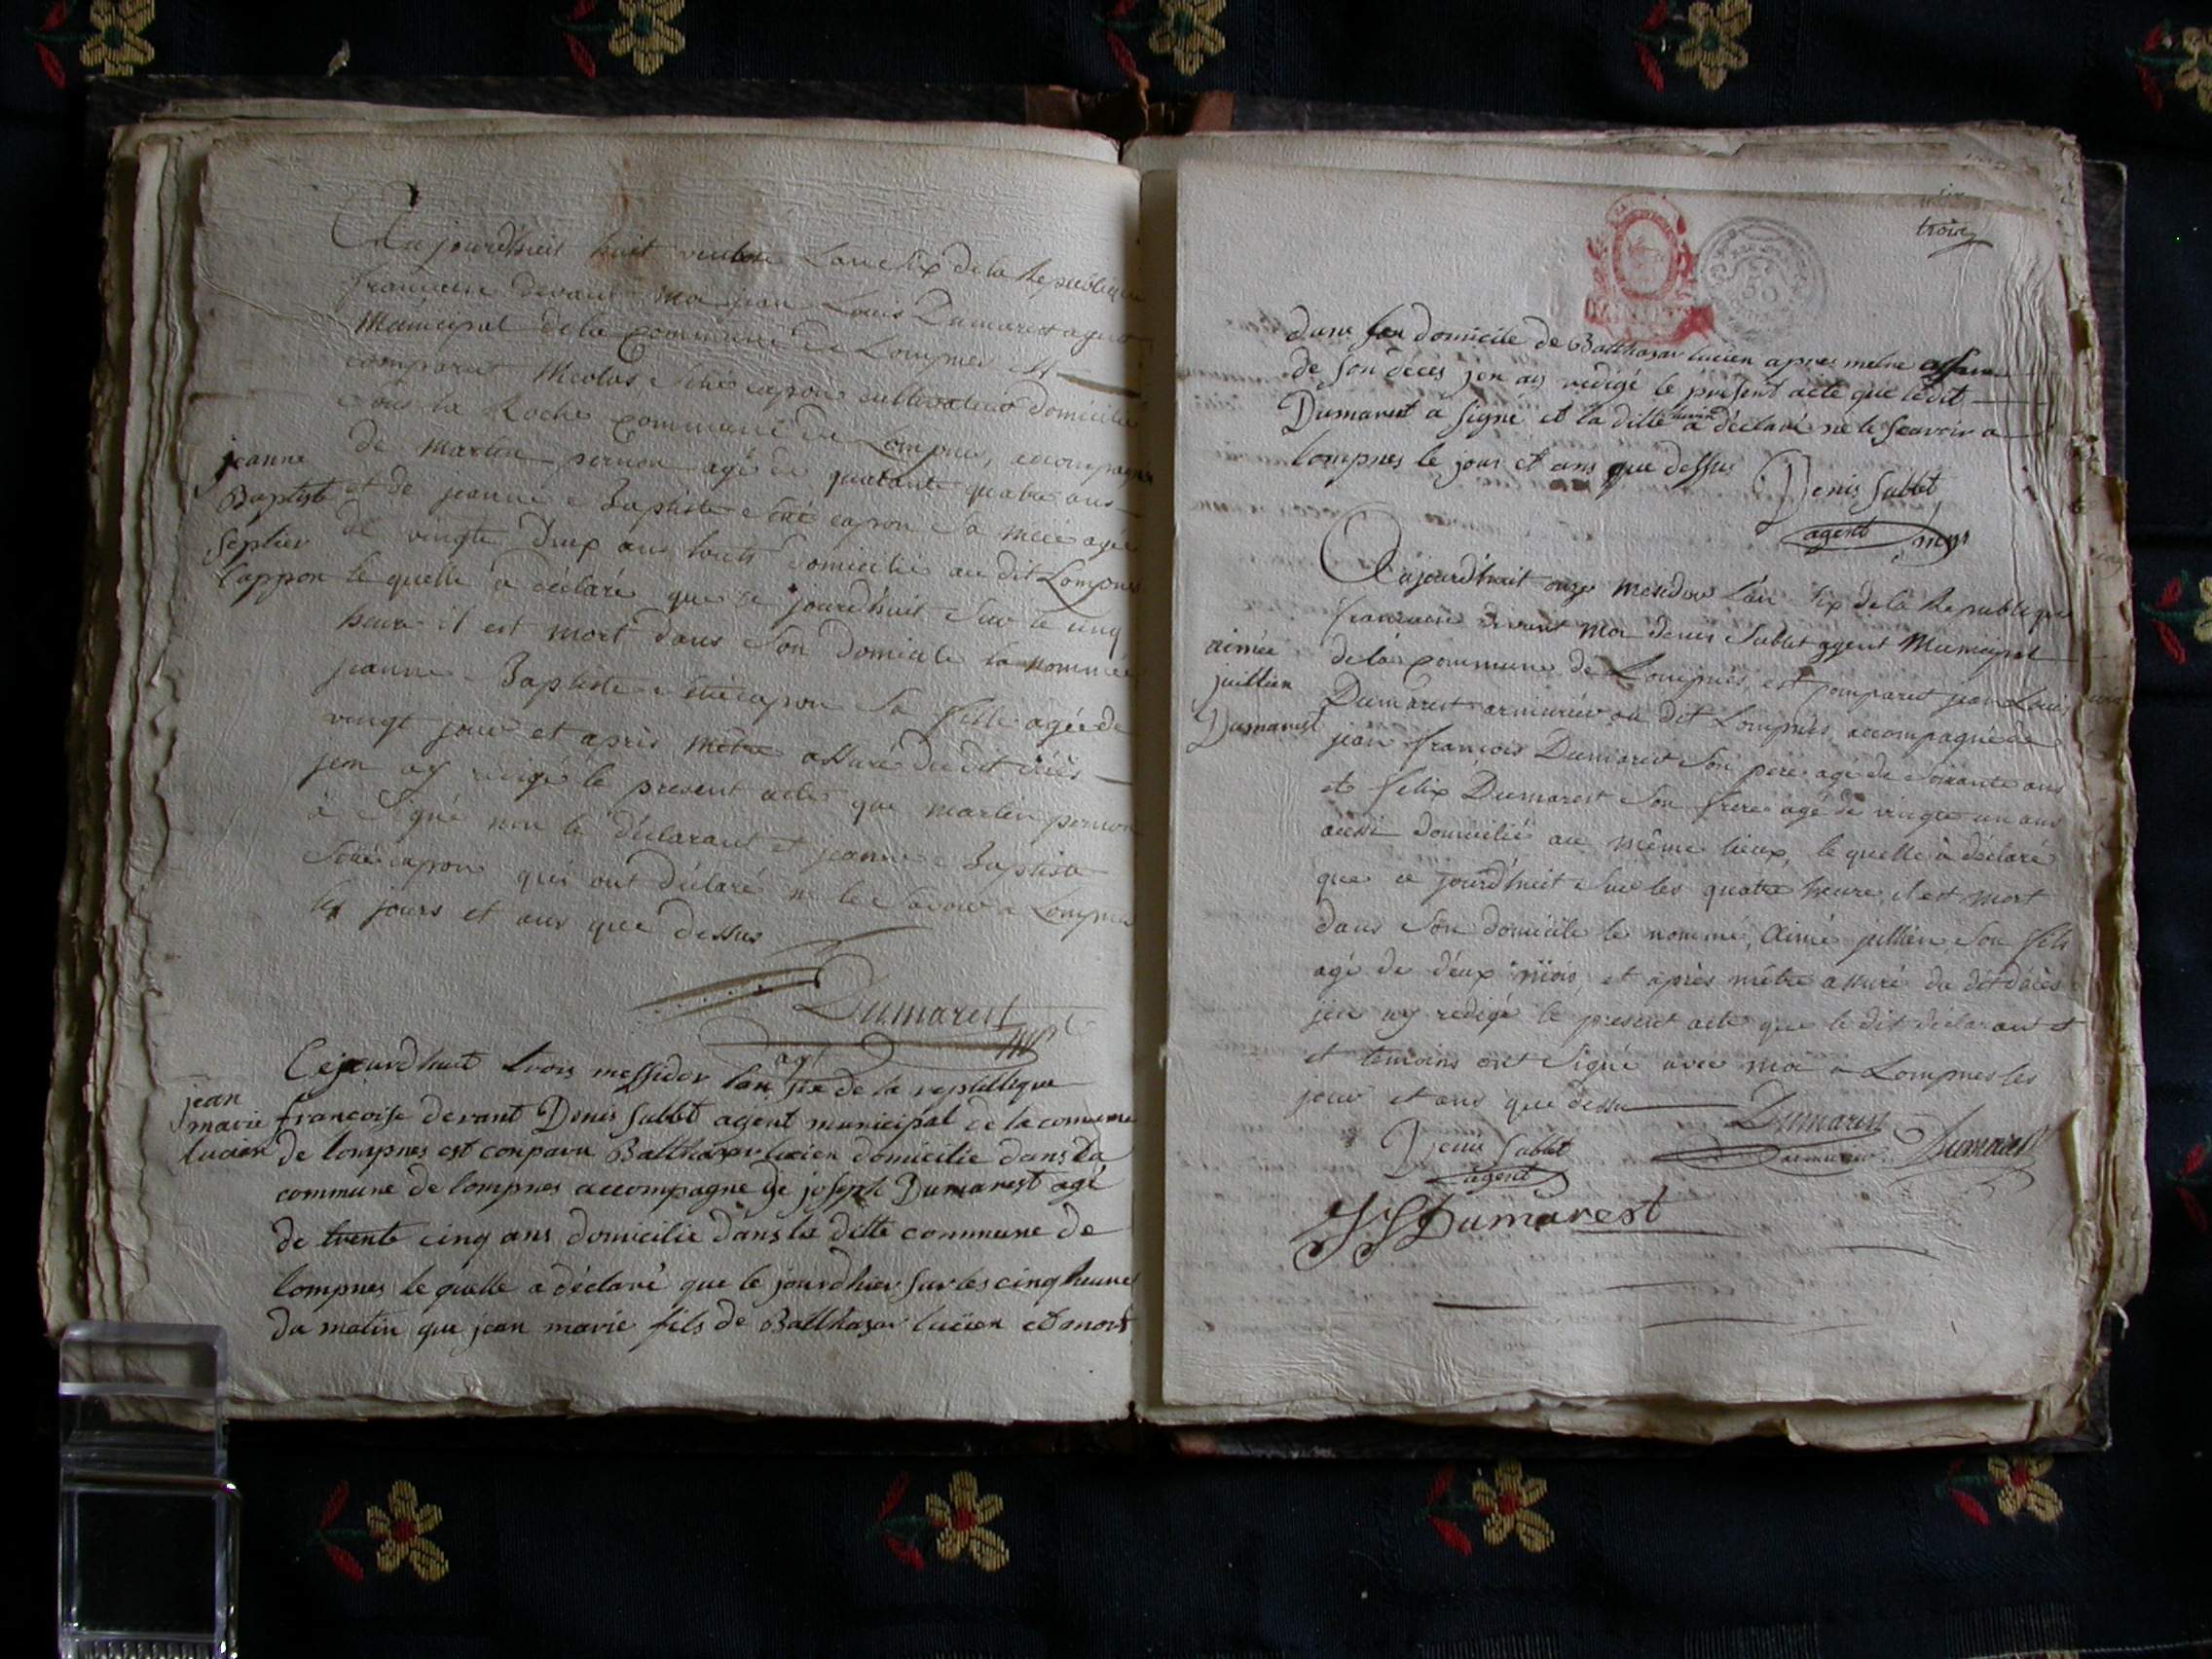 Aujourdhuit huit ventose Lan Six de la Republique
francaise devant moi jean Louis Dumarest agent
Municipal de la Commune de Lompnes est
comparut Nicolas cultivateur domicilié
sous la Roche Commune de Lompnes, accompagné
de Martin pernon agé de quatante quatre ans
et de jeanne Baptiste capon Sa agée
de vingte Deux ans touts domicilié au dit Lompnes
le quelle a déclaré que ce jourdhuit Sur le cinq
heure il est mort dans Son domicile la nommée
jeanne Baptiste Sa fille agée de
vingt jour et après mêtre assuré du dit décès
jen ay redigé le present acte que martin pernon
à Signé non le déclarant et jeanne Baptiste
capon qui ont déclaré ne le Savoir a Lompnes
les jours et ans que dessus
jeanne
Baptiste
Septier
Cappon
Dumarest
agt mpl
Cejourdhuit trois messidor lan six de la republique
francoise devant Denis Sublet agent municipal de la comune
de lompnes est conparu Balthazar lucien domicilie dans la
commune de lompnes accompagne de joseph Dumarest agé
de trente cinq ans domicilie dans la ditte commune de
lompnes le quelle a déclaré que le jourdhier sur les cinq heures
du matin que jean marie fils de Balthazar lucien est mort
jean
marie
lucien
trois
dans son domicile de Balthazar lucien apres metre assure
de son déces jen ay redigé le present acte que ledit
Dumarest a signé et la ditte lucien a déclaré ne le scavoir a
lompnes le jour et ans que dessus
Denis Sublet
agent mpl
Aujourdhuit onze Mesidor Lan Six de la Republique
francaise devant moi denis Sublet agent Municipal
de la commune de Lompnes, est comparut jean Louis
Dumarest armurier au dit Lompnes, accompagné de
jean françois Dumarest Son père agé de Soixante ans
et felix Dumarest Son frere agé de vingte un ans
aussi domicilié au même lieux, le quelle à déclaré
que ce jourdhuit Sur les quatre heure, il est mort
dans Son domicile le nommé, Aimé jullien Son fils
agé de deux mois, et après mêtre assuré du dit décès
jen ay redigé le present acte que le dit déclarant et
et temoins ont Signé avec moi a Lompnes les
jour et ans que dessu
aimée
juillien
Dumarest
Dumarest
Denis Sublet
agent
Dumarest
JF Dumarest